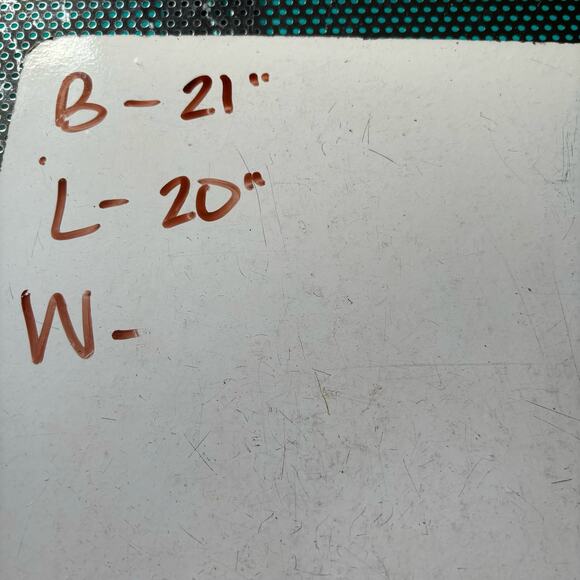 B - 21"
L - 20"
W -